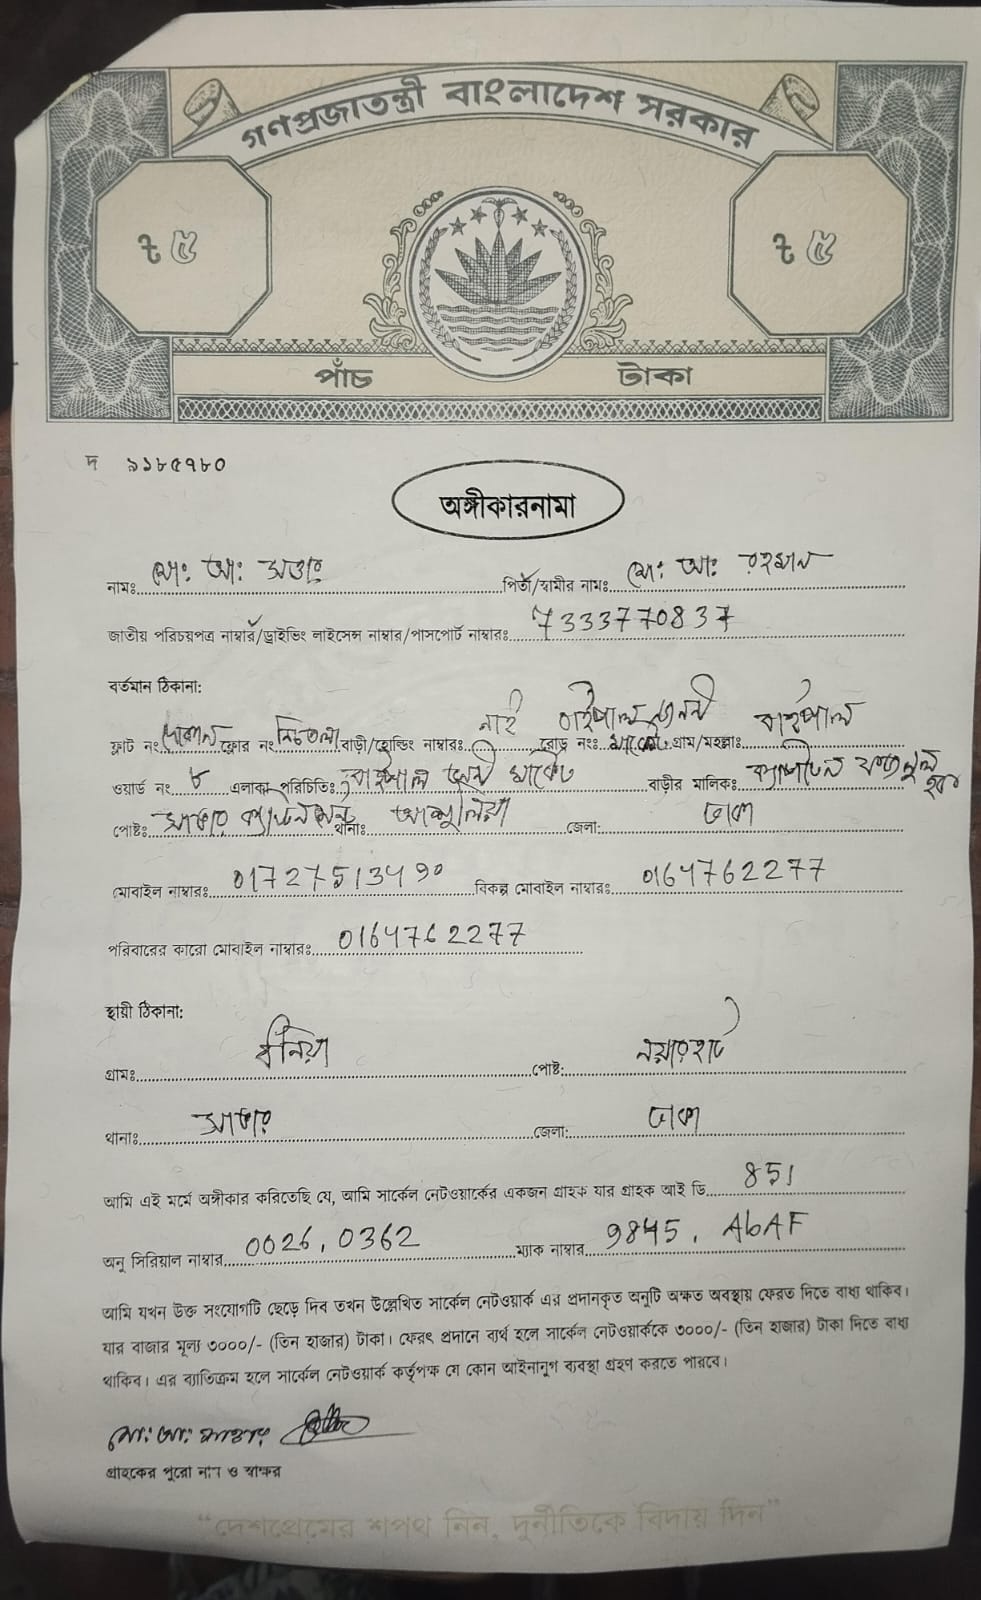 গণপ্রজাতন্ত্রী বাংলাদেশ সরকার
৳ ৫ ৳ ৫
পাঁচ টাকা
দ ৯১৮৫৭৮০
অঙ্গীকারনামা
নামঃ মোঃ আঃ সত্তার পিতা/স্বামীর নামঃ মোঃ আঃ রহমান
জাতীয় পরিচয়পত্র নাম্বার/ড্রাইভিং লাইসেন্স নাম্বার/পাসপোর্ট নাম্বারঃ 7333770837
বর্তমান ঠিকানা:
ফ্লাট নং দোকান ফ্লোর নং নিচতলা বাড়ী/হোল্ডিং নাম্বারঃ নাই রোড নংঃ বাইপাল মার্কেট গ্রাম/মহল্লাঃ বাইপাল
ওয়ার্ড নং ৮ এলাকা পরিচিতিঃ বাইপাল মার্কেট বাড়ীর মালিকঃ ক্যাপ্টেন ফজলুল হক
পোষ্টঃ সাভার ক্যান্টনমেন্ট থানাঃ আশুলিয়া জেলা: ঢাকা
মোবাইল নাম্বারঃ 017275134৯০ বিকল্প মোবাইল নাম্বারঃ 0164762277
পরিবারের কারো মোবাইল নাম্বারঃ 0164762277
স্থায়ী ঠিকানা:
গ্রামঃ পোষ্ট: নয়ারহাট
থানাঃ সাভার জেলা: ঢাকা
আমি এই মর্মে অঙ্গীকার করিতেছি যে, আমি সার্কেল নেটওয়ার্কের একজন গ্রাহক যার গ্রাহক আই ডি 851
অনু সিরিয়াল নাম্বার 0026, 0362 ম্যাক নাম্বার 9845, AbAF
আমি যখন উক্ত সংযোগটি ছেড়ে দিব তখন উল্লেখিত সার্কেল নেটওয়ার্ক এর প্রদানকৃত অনুটি অক্ষত অবস্থায় ফেরত দিতে বাধ্য থাকিব।
যার বাজার মূল্য ৩০০০/- (তিন হাজার) টাকা। ফেরৎ প্রদানে ব্যর্থ হলে সার্কেল নেটওয়ার্ককে ৩০০০/- (তিন হাজার) টাকা দিতে বাধ্য
থাকিব। এর ব্যাতিক্রম হলে সার্কেল নেটওয়ার্ক কর্তৃপক্ষ যে কোন আইনানুগ ব্যবস্থা গ্রহণ করতে পারবে।
মোঃ আঃ সাত্তার
গ্রাহকের পুরো নাম ও স্বাক্ষর
“দেশপ্রেমের শপথ নিন, দুর্নীতিকে বিদায় দিন”